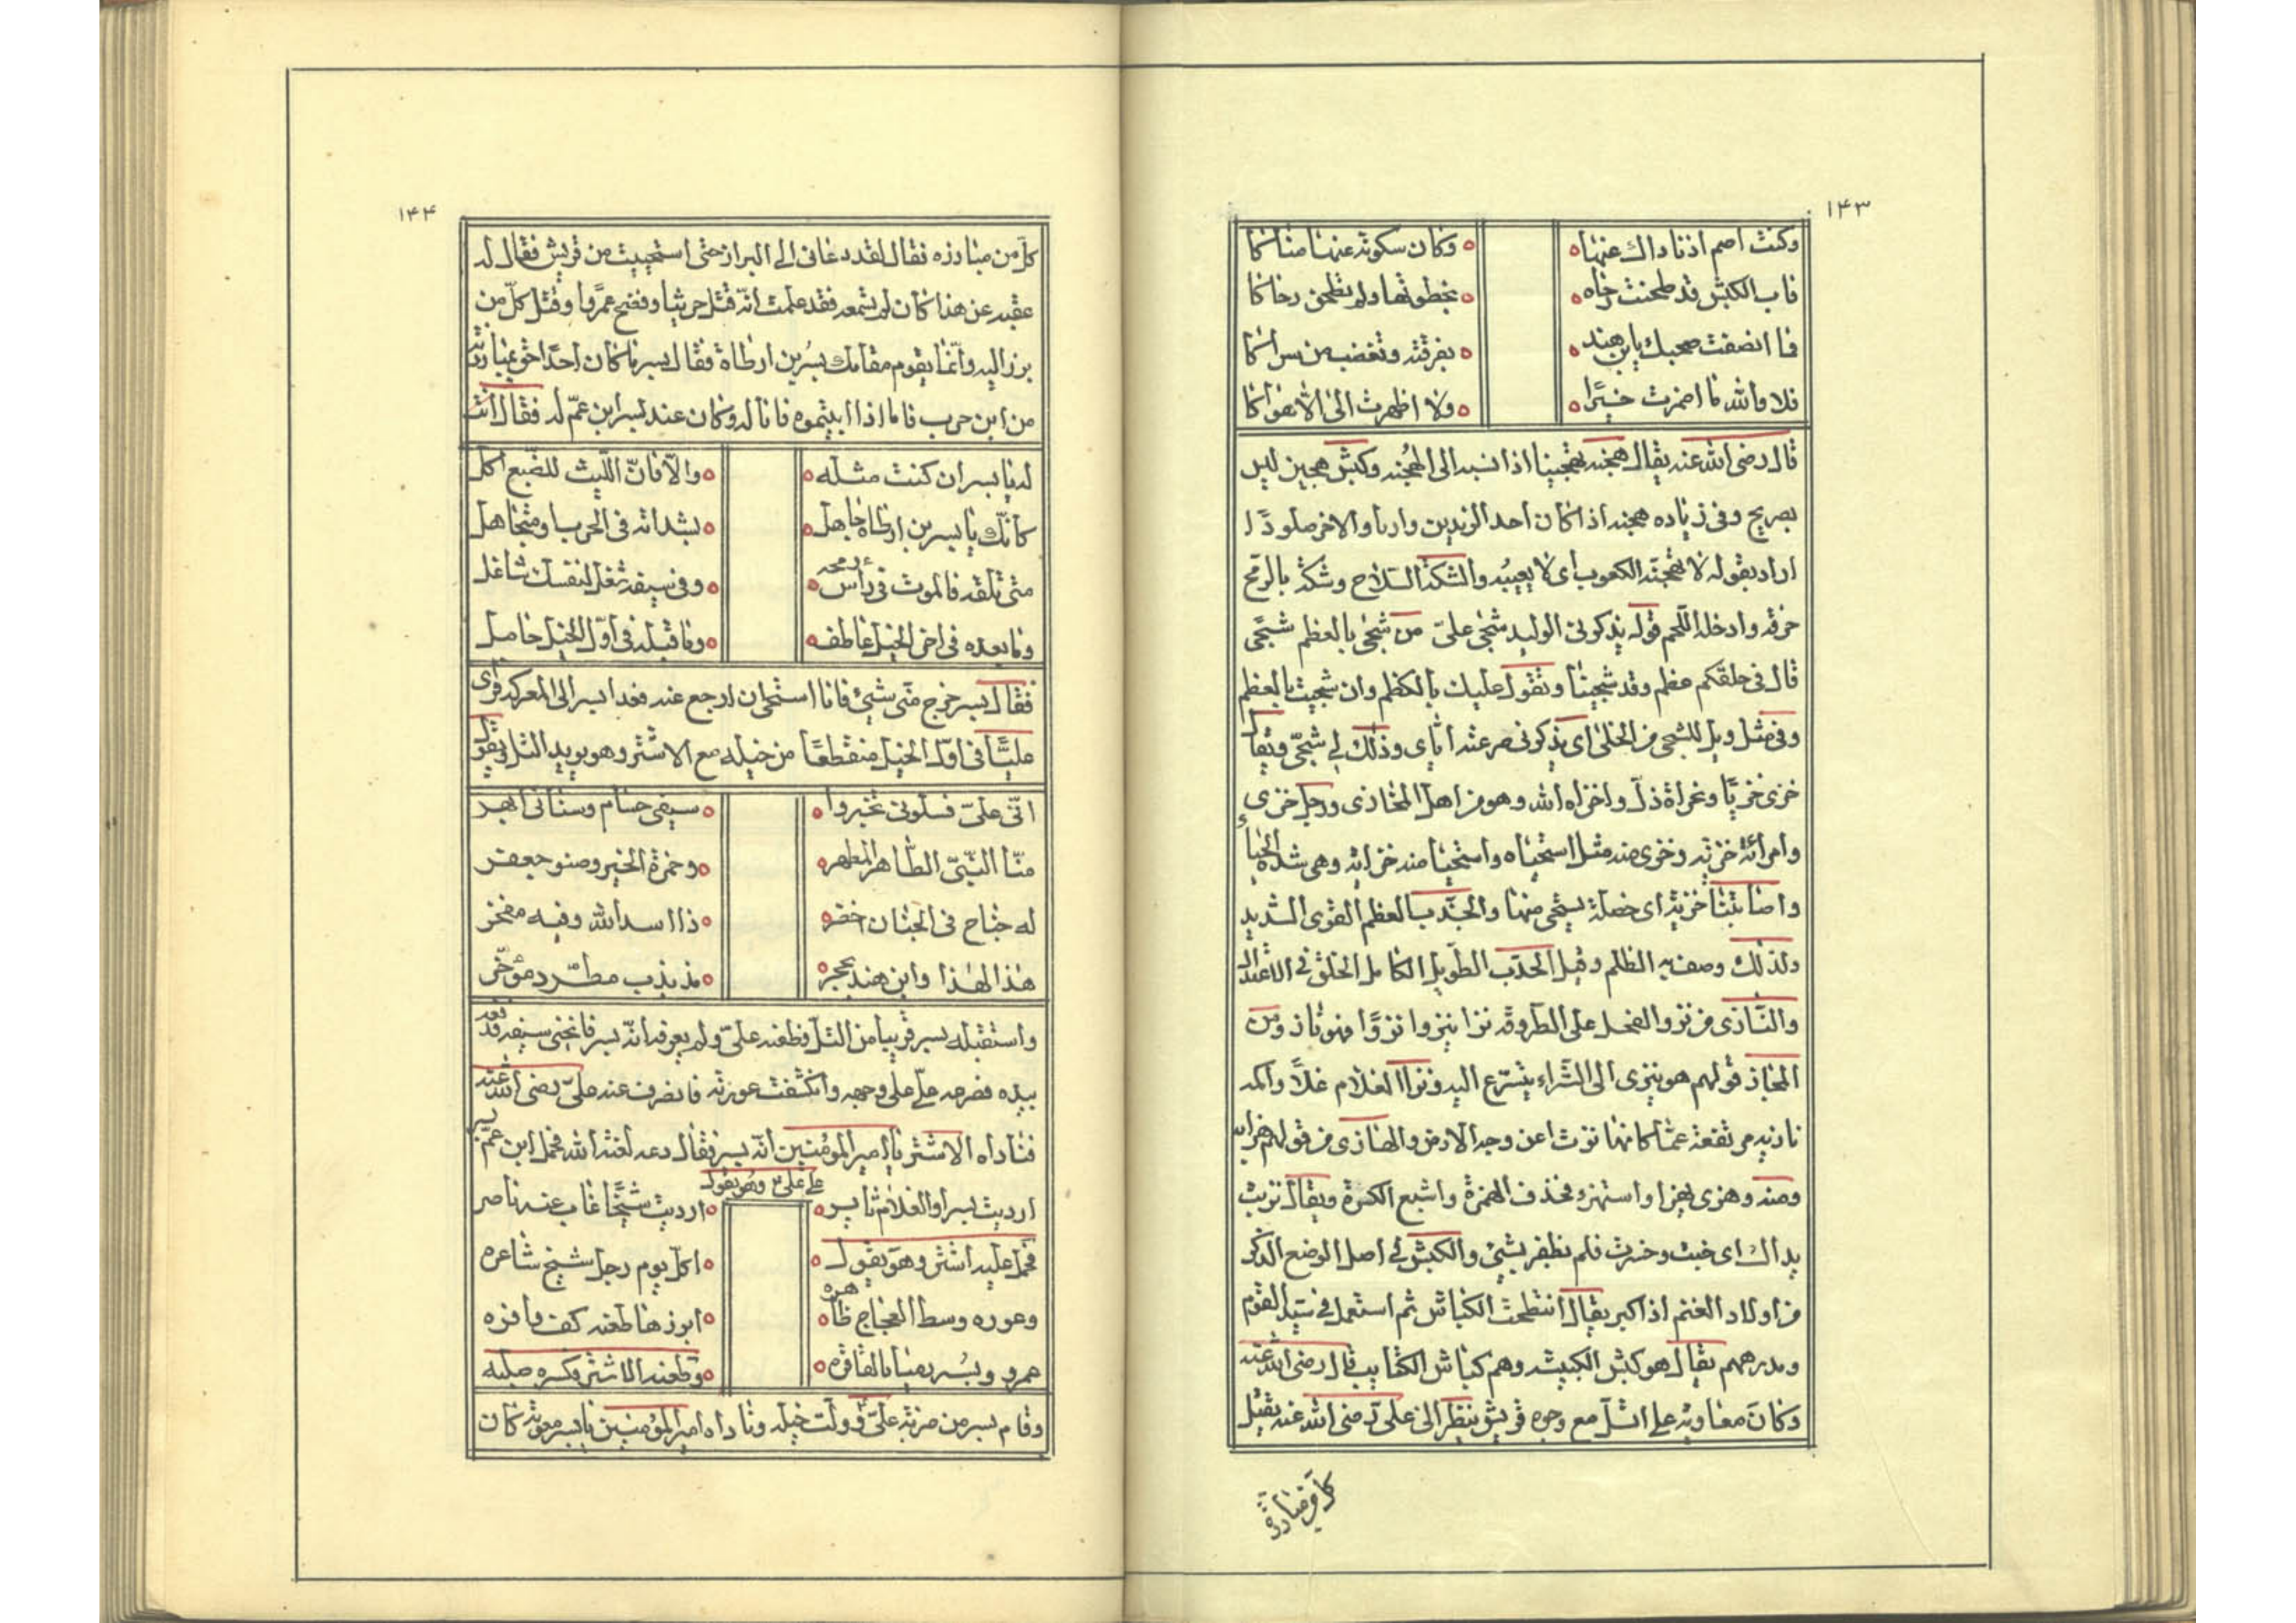 ١٤٣
وكنت اصم اذناذاك عنها ٥ وكان سكوته عنها مناكا
فاب الكبش قد طحنت رحاه ٥ بخطوتها ولم تطحن رحاكا
فما انصفت صحبك يابن هند ٥ بفرقته وتغضب من سراكا
فلا والله ما اضمرت خيرًا ٥ ولا اظهرت الى الا هواكا
قال رضى الله عنه يقال هجنه تهجينا اذا نسبه الى الهُجنه وكبش هجين ليس
بصريح وفى زناده هجنه اذا كان احد الزندين واريا والاخر صلودًا
اراد بقوله لا تهجنه الكعوب اى لا يعيبُه والشكة السّلاح وشكّه بالرّمح
خرقه وادخله اللّحم قوله يذكرونى الوليد شجى علىّ من شجى بالعظم شجًى
قال فى حلقكم عظم وقد شجينا وتقول عليك بالكظم وان شجيت بالعظم
وفى مثل ويل للشجى من الخلى اى يذكرونى صرعته اياى وذلك لى شجىّ ويقال
خزى خزيًا ومخزاة ذلّ واخزاه الله وهو من اهل المخازى ورجل خزى
وامرأة خزيه وخزى منه مثل استحياه واستحيا منه خزايه وهى شدة الحياء
واصابتنا خزيه اى خصلة يستحى منها والخدب العظم القوى الشديد
ولذلك وصف به الظلم وقيل الخدب الطّويل الكامل الخلق فى الاعتدال
والنّازى من نزو الفحل على الطروقه نزا ينزوا نزوًا فهو ناز ومن
المجاز قولهم هو ينزى الى الشّراء يتسرّع اليه ونزا الغلام غلاً واكمه
نازيه مرتفعة عمّا كانها نزت اعن وجه الارض والهازى من قولهم هزا به
ومنه وهزى يهزا واستهزء فحذف الهمزة واشبع الكسرة ويقال تربت
يداك اى خبت وخسرت فلم تظفر بشئ والكبش فى اصل الوضع الذكر
من اولاد الغنم اذا كبر يقال انتطحت الكباش ثم استعمل فى سيّد القوم
ومدرههم يقال هو كبش الكبيبه وهم كباش الكتايب قال رضى الله عنه
وكان معاويه على التلّ مع وجوه قريش ينظر الى علىّ رضى الله عنه يقتل
كل من مبارزه
١٤٤
كلّ من مبارزه فقال لقد دعانى الى البراز حتى استحييت من قريش فقال له
عقبه عن هذا كان لم تسمعه فقد علمت انّه قتل حريثا وفضح عمرًوا وقتل كلّ من
برز اليه وانّما يقوم مقامك بُسر بن ارطاة فقال بسر ما كان احدًا احق بمبارزته
من ابن حرب فاما اذا ابيتموه فانا له وكان عند بسر ابن عمّ له فقال انت
له يا بسر ان كنت مثله ٥ والّا فانّ اللّيث للضّبع اكل
كانّك يا بسر بن ارطاه جاهل ٥ بشداته فى الحرب او متجاهل
متى تلقه فالموت فى راس رمحه ٥ وفى سيفه شغل لنفسك شاغل
وما بعده فى اخر الخيل عاطف ٥ وما قبله فى اوّل الخيل حامل
فقال بسر خرج منّى شئ فانا استحى ان ارجع عنه فغدا بسر الى المعركه فراى
عليًّا فى اوّل الخيل منقطعًا من خيله مع الاشتر وهو يريد التل ويقول
انّى علىّ فسلونى تخبروا ٥ سيفى حسام وسنانى ازهر
منّا النّبىّ الطّاهر المطهر ٥ وحمزة الخير وصنو جعفر
له جناح فى الجنان اخضر ٥ ذا اسد الله وفيه مفخر
هذا لهذا وابن هند محجر ٥ مذبذب مطّرد مؤخّر
واستقبله بسر قريبا من التلّ فطعنه علىّ ولم يعرفه انّه بسر فانحنى سيفه فقد
بيده فصرعه على على وجهه وانكشفت عورته فانصرف عنه علىّ رضى الله عنه
فناداه الاشتر يا امير المؤمنين انّه بسر فقال دعه لعنه الله فحمل ابن عمّ بسر
على علىّ وهو يقول
ارديت بسرا والغلام ثايره ٥ ارديت شيخًا غاب عنه ناصر
فحمل عليه اشتر وهو يقول ٥ اكلّ يوم رجل شيخ شاعره
وعوره وسط العجاج ظاهره ٥ ابرزها طعنه كف فاقره
عمرو وبُسر رميا بالفاقره ٥ وطعنه الاشتر وكسره صلبه
وقام بسر من ضربه علىّ وولّت خيله وناداه امير المؤمنين يا بسر معويه كان